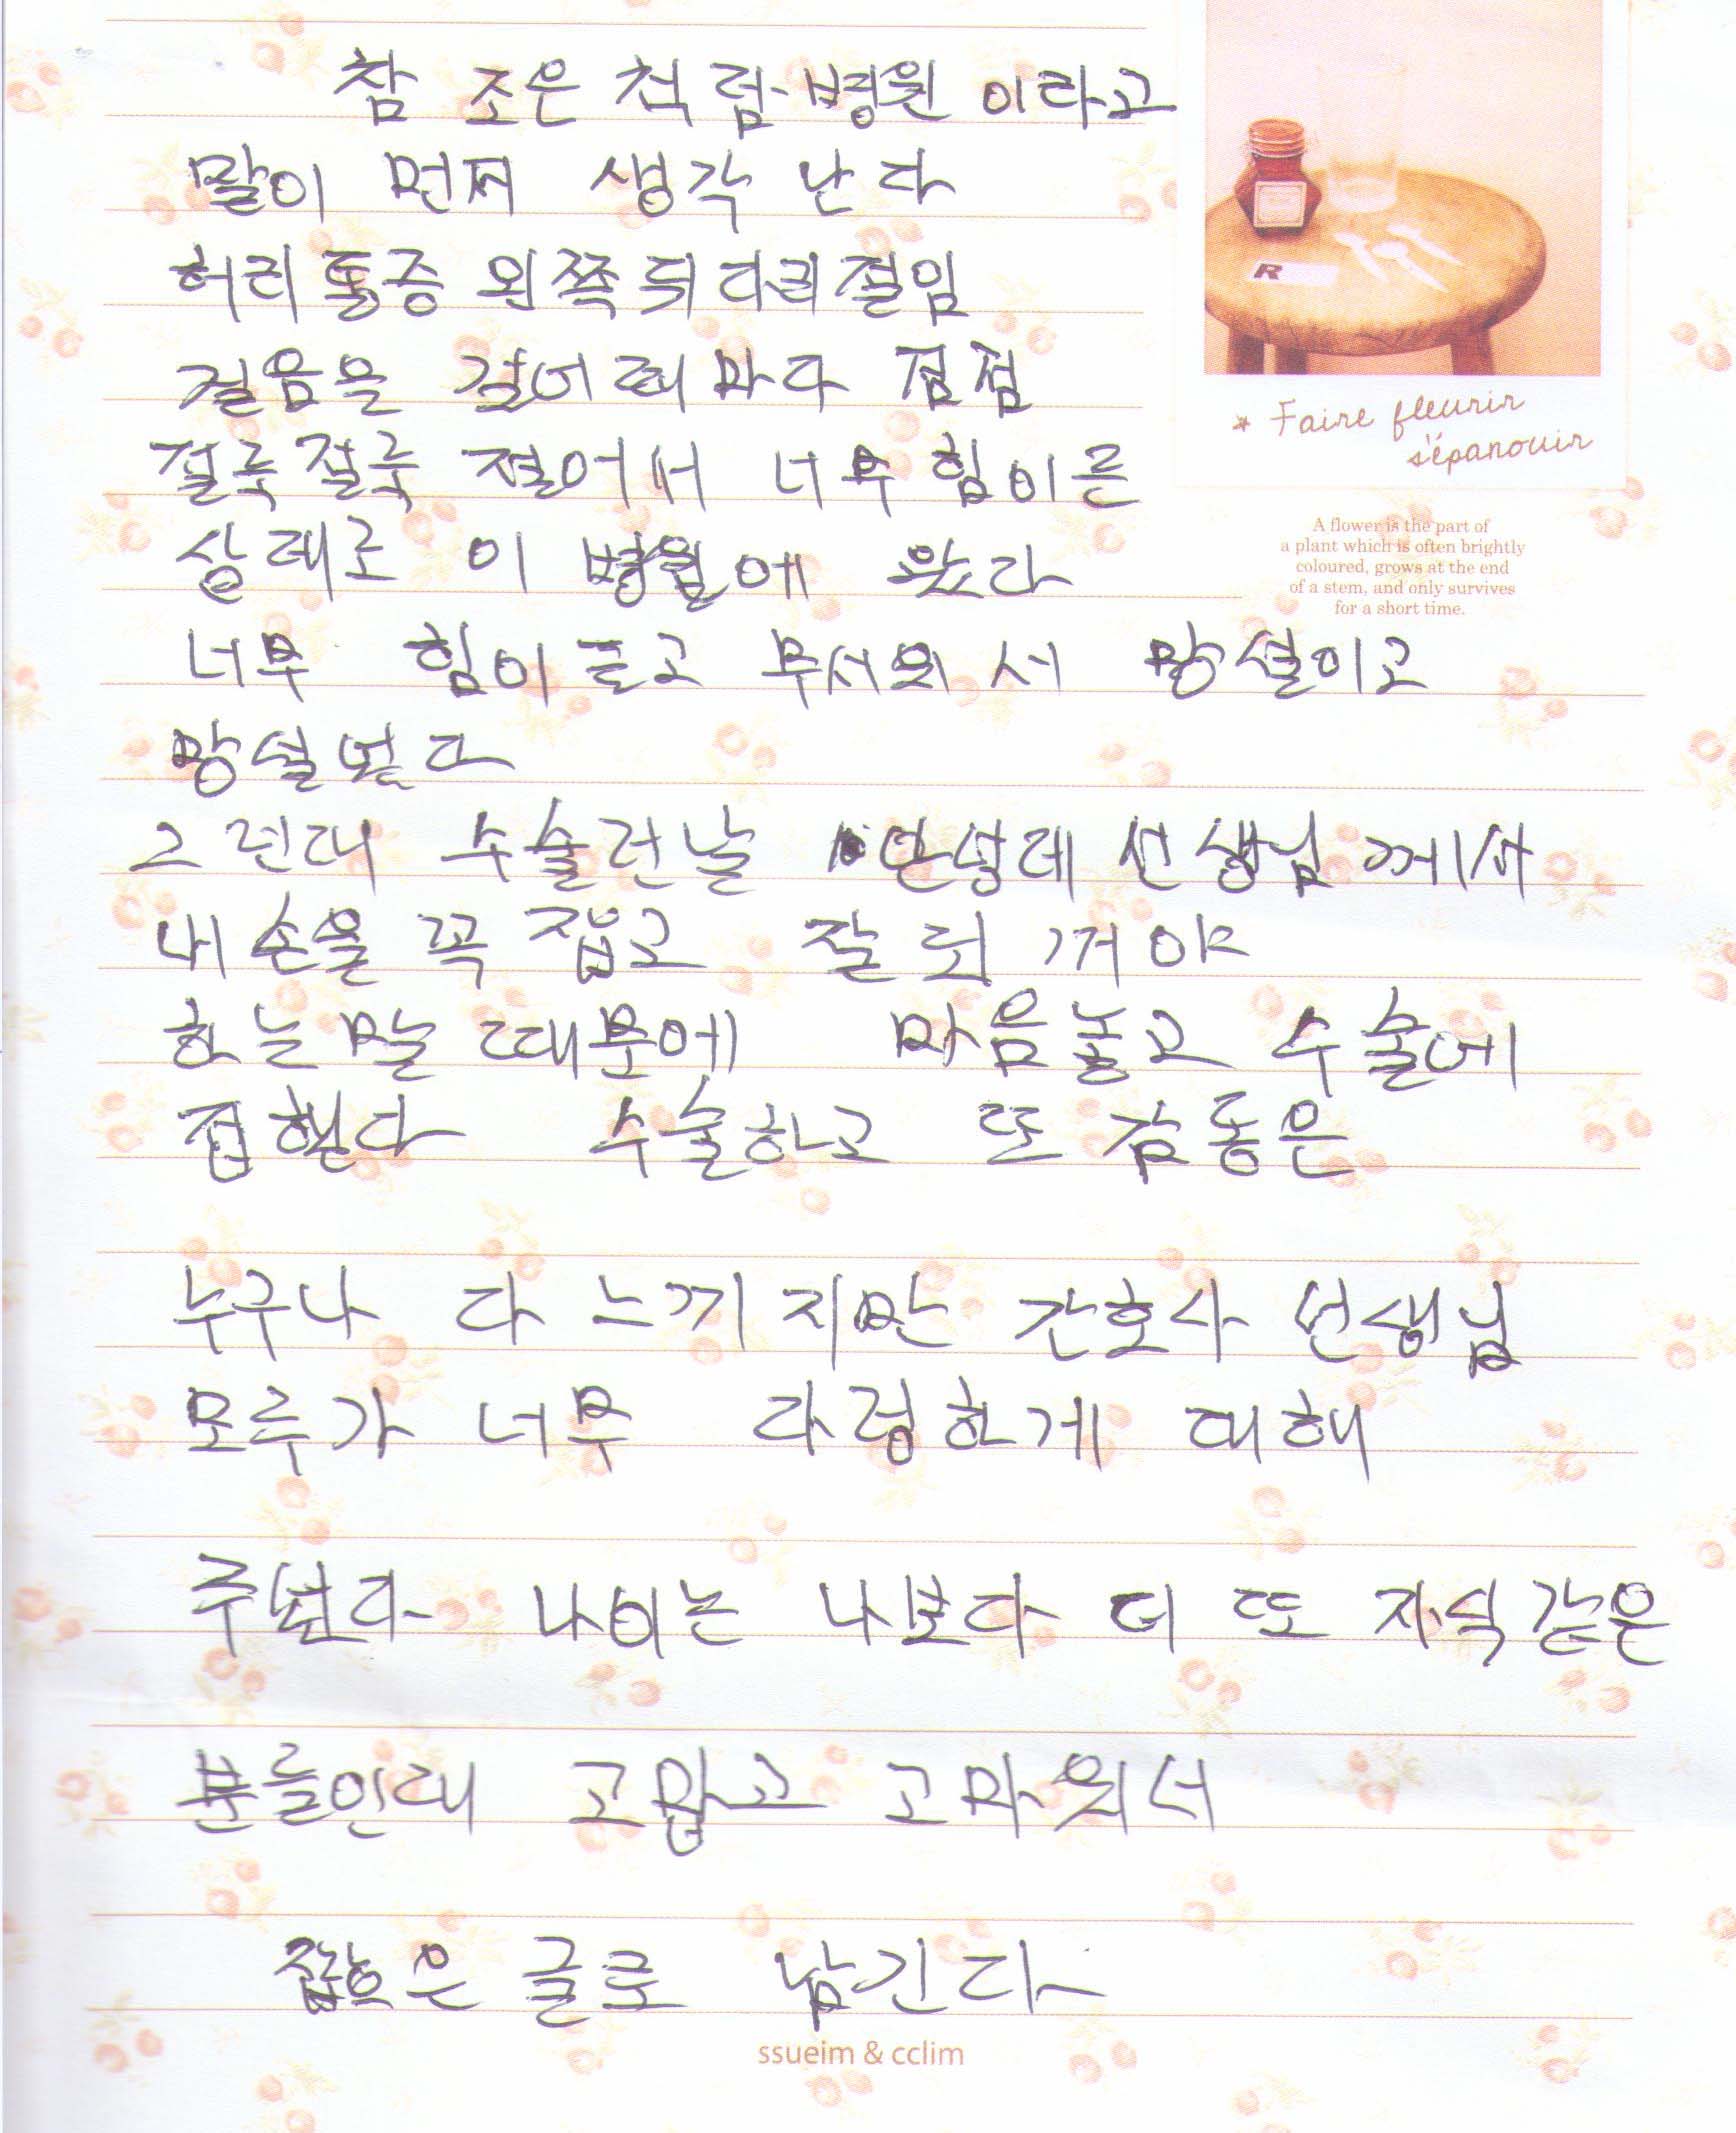 참 조은 척렴 병원 이라고
말이 먼저 생각 난다
허리 통증 왼쪽 뒤 다리 절임
걸음을 걸어 때마다 점점
절룩절룩 절어서 너무 힘이른
상태로 이 병원에 왔다
너무 힘이 들고 무서워서 망설이고
망설였다
그런대 수술런날 안성례 선생님 께서
내 손을 꼭 잡고 잘 되 꺼야
하는말 때문에 마음놓고 수술에
접했다 수술하고 또 감동은
누구나 다 느끼 지만 간호사 선생님
모두가 너무 다정하게 대해
주셨다 나이는 나보다 더 또 자식같은
분들인대 고맙고 고마워서
짧은 글로 남긴다
* Faire fleurir
s'épanouir
A flower is the part of
a plant which is often brightly
coloured, grows at the end
of a stem, and only survives
for a short time.
R
ssueim & cclim